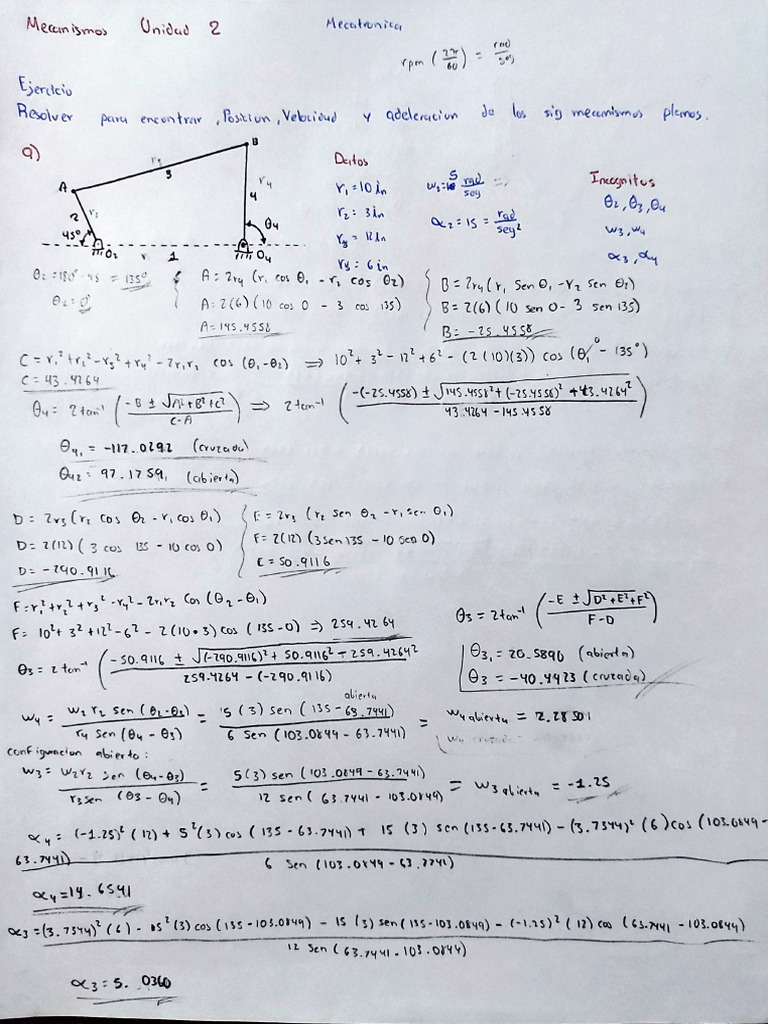 Mecanismos Unidad 2 Mecatronica
rpm (2π/60) = rad/seg
Ejercicio
Resolver para encontrar, Posicion, Velocidad y aceleracion de los sig mecanismos planos.
a)
A B 2 r2 3 r3 4 r4 45° θ4 O2 O4 r1 1
Datos
r1 = 10 in
r2 = 3 in
r3 = 12 in
r4 = 6 in
w2 = 5 rad/seg
α2 = 15 = rad/seg²
Incognitas
θ2, θ3, θ4
w3, w4
α3, α4
θ2 = 180° - 45 = 135°
θ2 = 0°
A = 2r4 (r1 cos θ1 - r2 cos θ2)
A = 2(6) (10 cos 0 - 3 cos 135)
A = 145.4558
B = 2r4 (r1 sen θ1 - r2 sen θ2)
B = 2(6) (10 sen 0 - 3 sen 135)
B = -25.4558
C = r1² + r2² - r3² + r4² - 2r1r2 cos (θ1 - θ2) ⟹ 10² + 3² - 12² + 6² - (2(10)(3)) cos (θ1⁰ - 135°)
C = 43.4264
θ4 = 2 tan⁻¹ ((-B ± √A² + B² + C²)/(C-A)) ⟹ 2 tan⁻¹ ((-(-25.4558) ± √145.4558² + (-25.4558)² + 43.4264²)/(43.4264 - 145.4558))
θ41 = -117.0292 (cruzada)
θ42 = 97.1759, (abierta)
D = 2r3 (r2 cos θ2 - r1 cos θ1)
D = 2(12) (3 cos 135 - 10 cos 0)
D = -290.9116
E = 2r3 (r2 sen θ2 - r1 sen θ1)
E = 2(12) (3 sen 135 - 10 sen 0)
E = 50.9116
F = r1² + r2² + r3² - r4² - 2r1r2 Cos (θ2 - θ1)
F = 10² + 3² + 12² - 6² - 2(10•3) cos (135 - 0) ⟹ 259.4264
θ3 = 2 tan⁻¹ ((-E ± √D² + E² + F²)/(F-D))
θ3 = 2 tan⁻¹ ((-50.9116 ± √(-290.9116)² + 50.9116² - 259.4264²)/(259.4264 - (-290.9116)))
θ31 = 20.5890 (abierta)
θ3 = -40.4923 (cruzada)
w4 = (w2 r2 sen (θ2 - θ3))/(r4 sen (θ4 - θ3)) = (5 (3) sen (135 - 63.7441))/(6 sen (103.0849 - 63.7441)) = w4 abierta = 2.28501
abierta
configuracion abierto:
w3 = (w2r2 sen (θ4 - θ2))/(r3 sen (θ3 - θ4)) = (5(3) sen (103.0849 - 63.7441))/(12 sen (63.7441 - 103.0849)) = w3 abierta = -1.25
α4 = (-1.25)² (12) + 5² (3) cos (135 - 63.7441) + 15 (3) sen (135 - 63.7441) - (3.7344)² (6) cos (103.0849 -
63.7441)
6 sen (103.0844 - 63.7741)
α4 = 14.6541
α3 = (3.7344)² (6) - 15² (3) cos (135 - 103.0849) - 15 (3) sen (135 - 103.0849) - (-1.25)² (12) cos (63.7441 - 103.0849)
12 sen (63.7441 - 103.0844)
α3 = 5. 0360